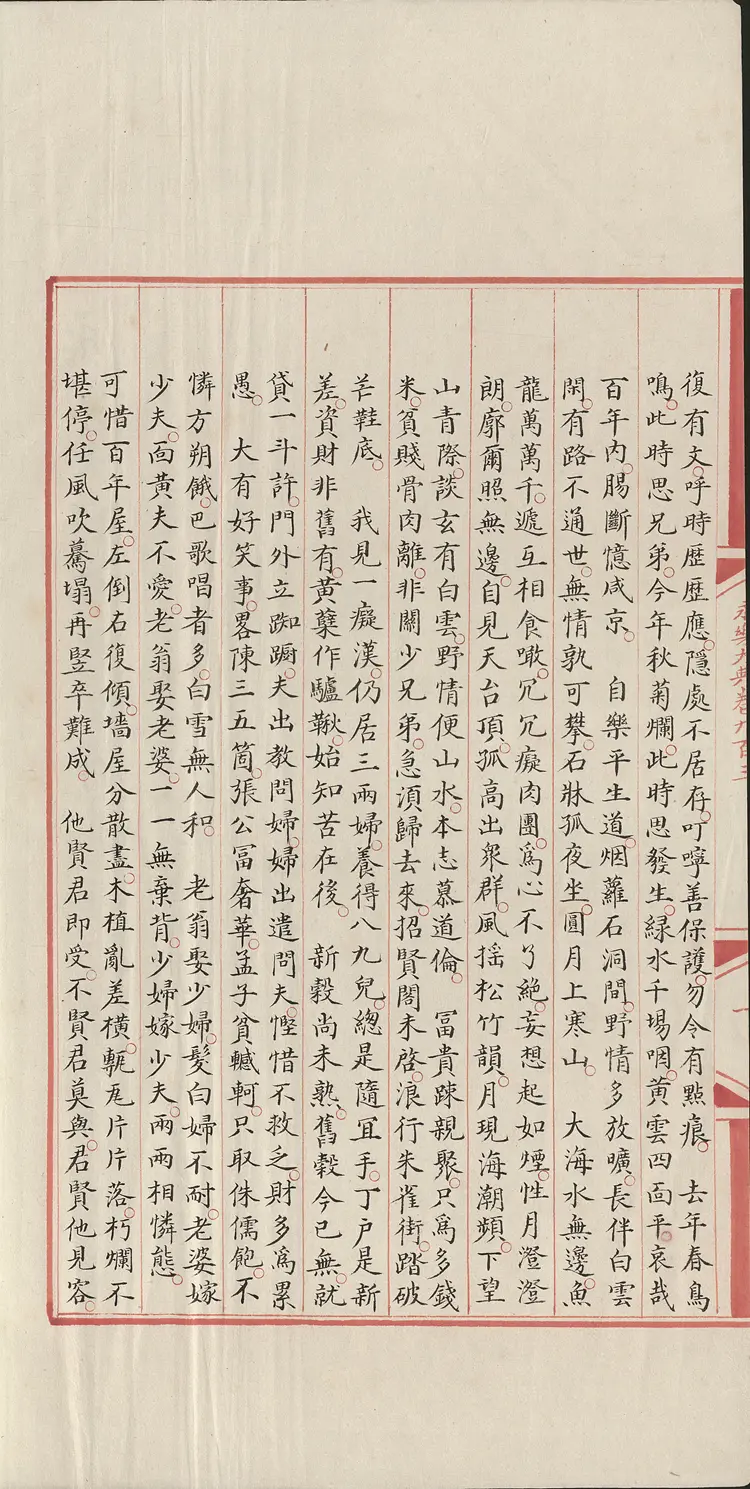 永樂大典卷九百三
復有文。呼時歴歴應。隱處不居存。叮嚀善保護。勿令有點痕。　去年春鳥
鳴。此時思兄弟。今年秋菊爛。此時思發生。緑水千塲咽。黄雲四面平。哀哉
百年内。腸斷憶咸京。　自樂平生道。烟蘿石洞間。野情多放曠。長伴白雲
閑。有路不通世。無情孰可攀。石牀孤夜坐。圓月上寒山。　大海水無邊。魚
龍萬萬千。遞互相食噉。冗冗癡肉團。爲心不了絶。妄想起如煙。性月澄澄
朗。廓爾照無邊。自見天台頂。孤高出衆群。風揺松竹韻。月現海潮頻。下望
山青際。談玄有白雲。野情便山水。本志慕道倫。　冨貴踈親聚。只爲多錢
米。貧賤骨肉離。非關少兄弟。急湏歸去來。招賢閤未啓。浪行朱雀街。踏破
芒鞋底。　我見一癡漢。仍居三兩婦。養得八九兒。緫是隨宜手。丁户是新
差。資財非舊有。黄蘗作驢鞦。始知苦在後。　新穀尚未熟。舊穀今已無。就
貸一斗許。門外立踟蹰。夫出教問婦。婦出遣問夫。慳惜不救乏。財多爲累
愚。　大有好笑事。畧陳三五箇。張公冨奢華。孟子貧轗軻。只取侏儒飽。不
憐方朔餓。巴歌唱者多。白雪無人和。　老翁娶少婦。髮白婦不耐。老婆嫁
少夫。面黄夫不愛。老翁娶老婆。一一無棄背。少婦嫁少夫。兩兩相憐態。
可惜百年屋。左倒右復傾。墻屋分散盡。木植亂差橫。甎瓦片片落。朽爛不
堪停。任風吹驀塌。再竪卒難成。　他賢君即受。不賢君莫與。君賢他見容。